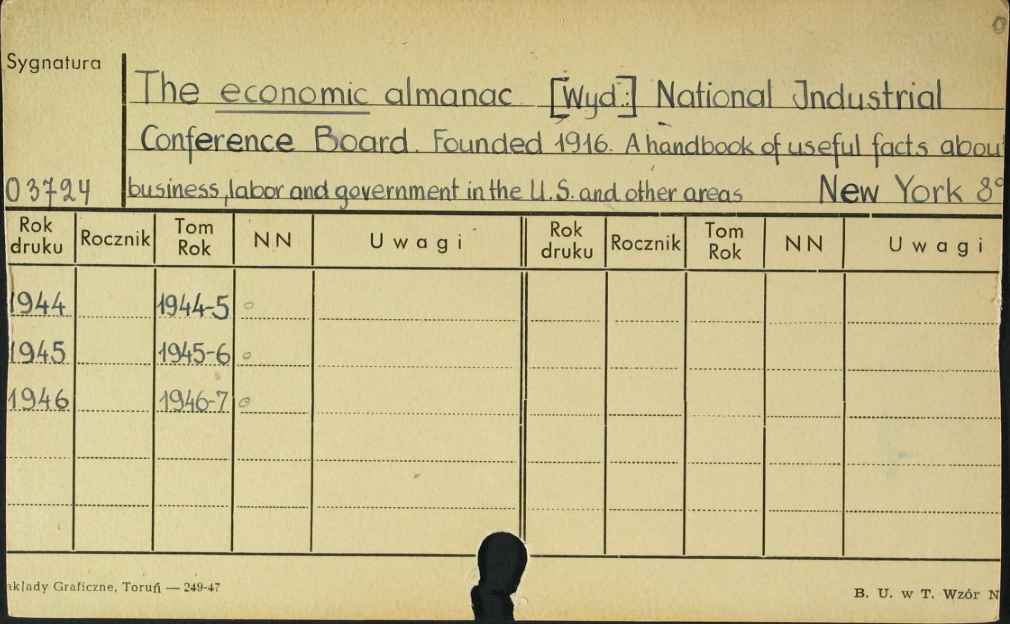 Sygnatura
The economic almanac [Wyd.:] National Industrial
Conference Board. Founded 1916. A handbook of useful facts abou
03724 business, labor and government in the U.S. and other areas New York 8°
Rok druku Rocznik Tom Rok NN Uwagi Rok druku Rocznik Tom Rok NN Uwagi
1944 1944-5 o
1945 1945-6 o
1946 1946-7 o
akłady Graficzne, Toruń — 249-47 B. U. w T. Wzór N